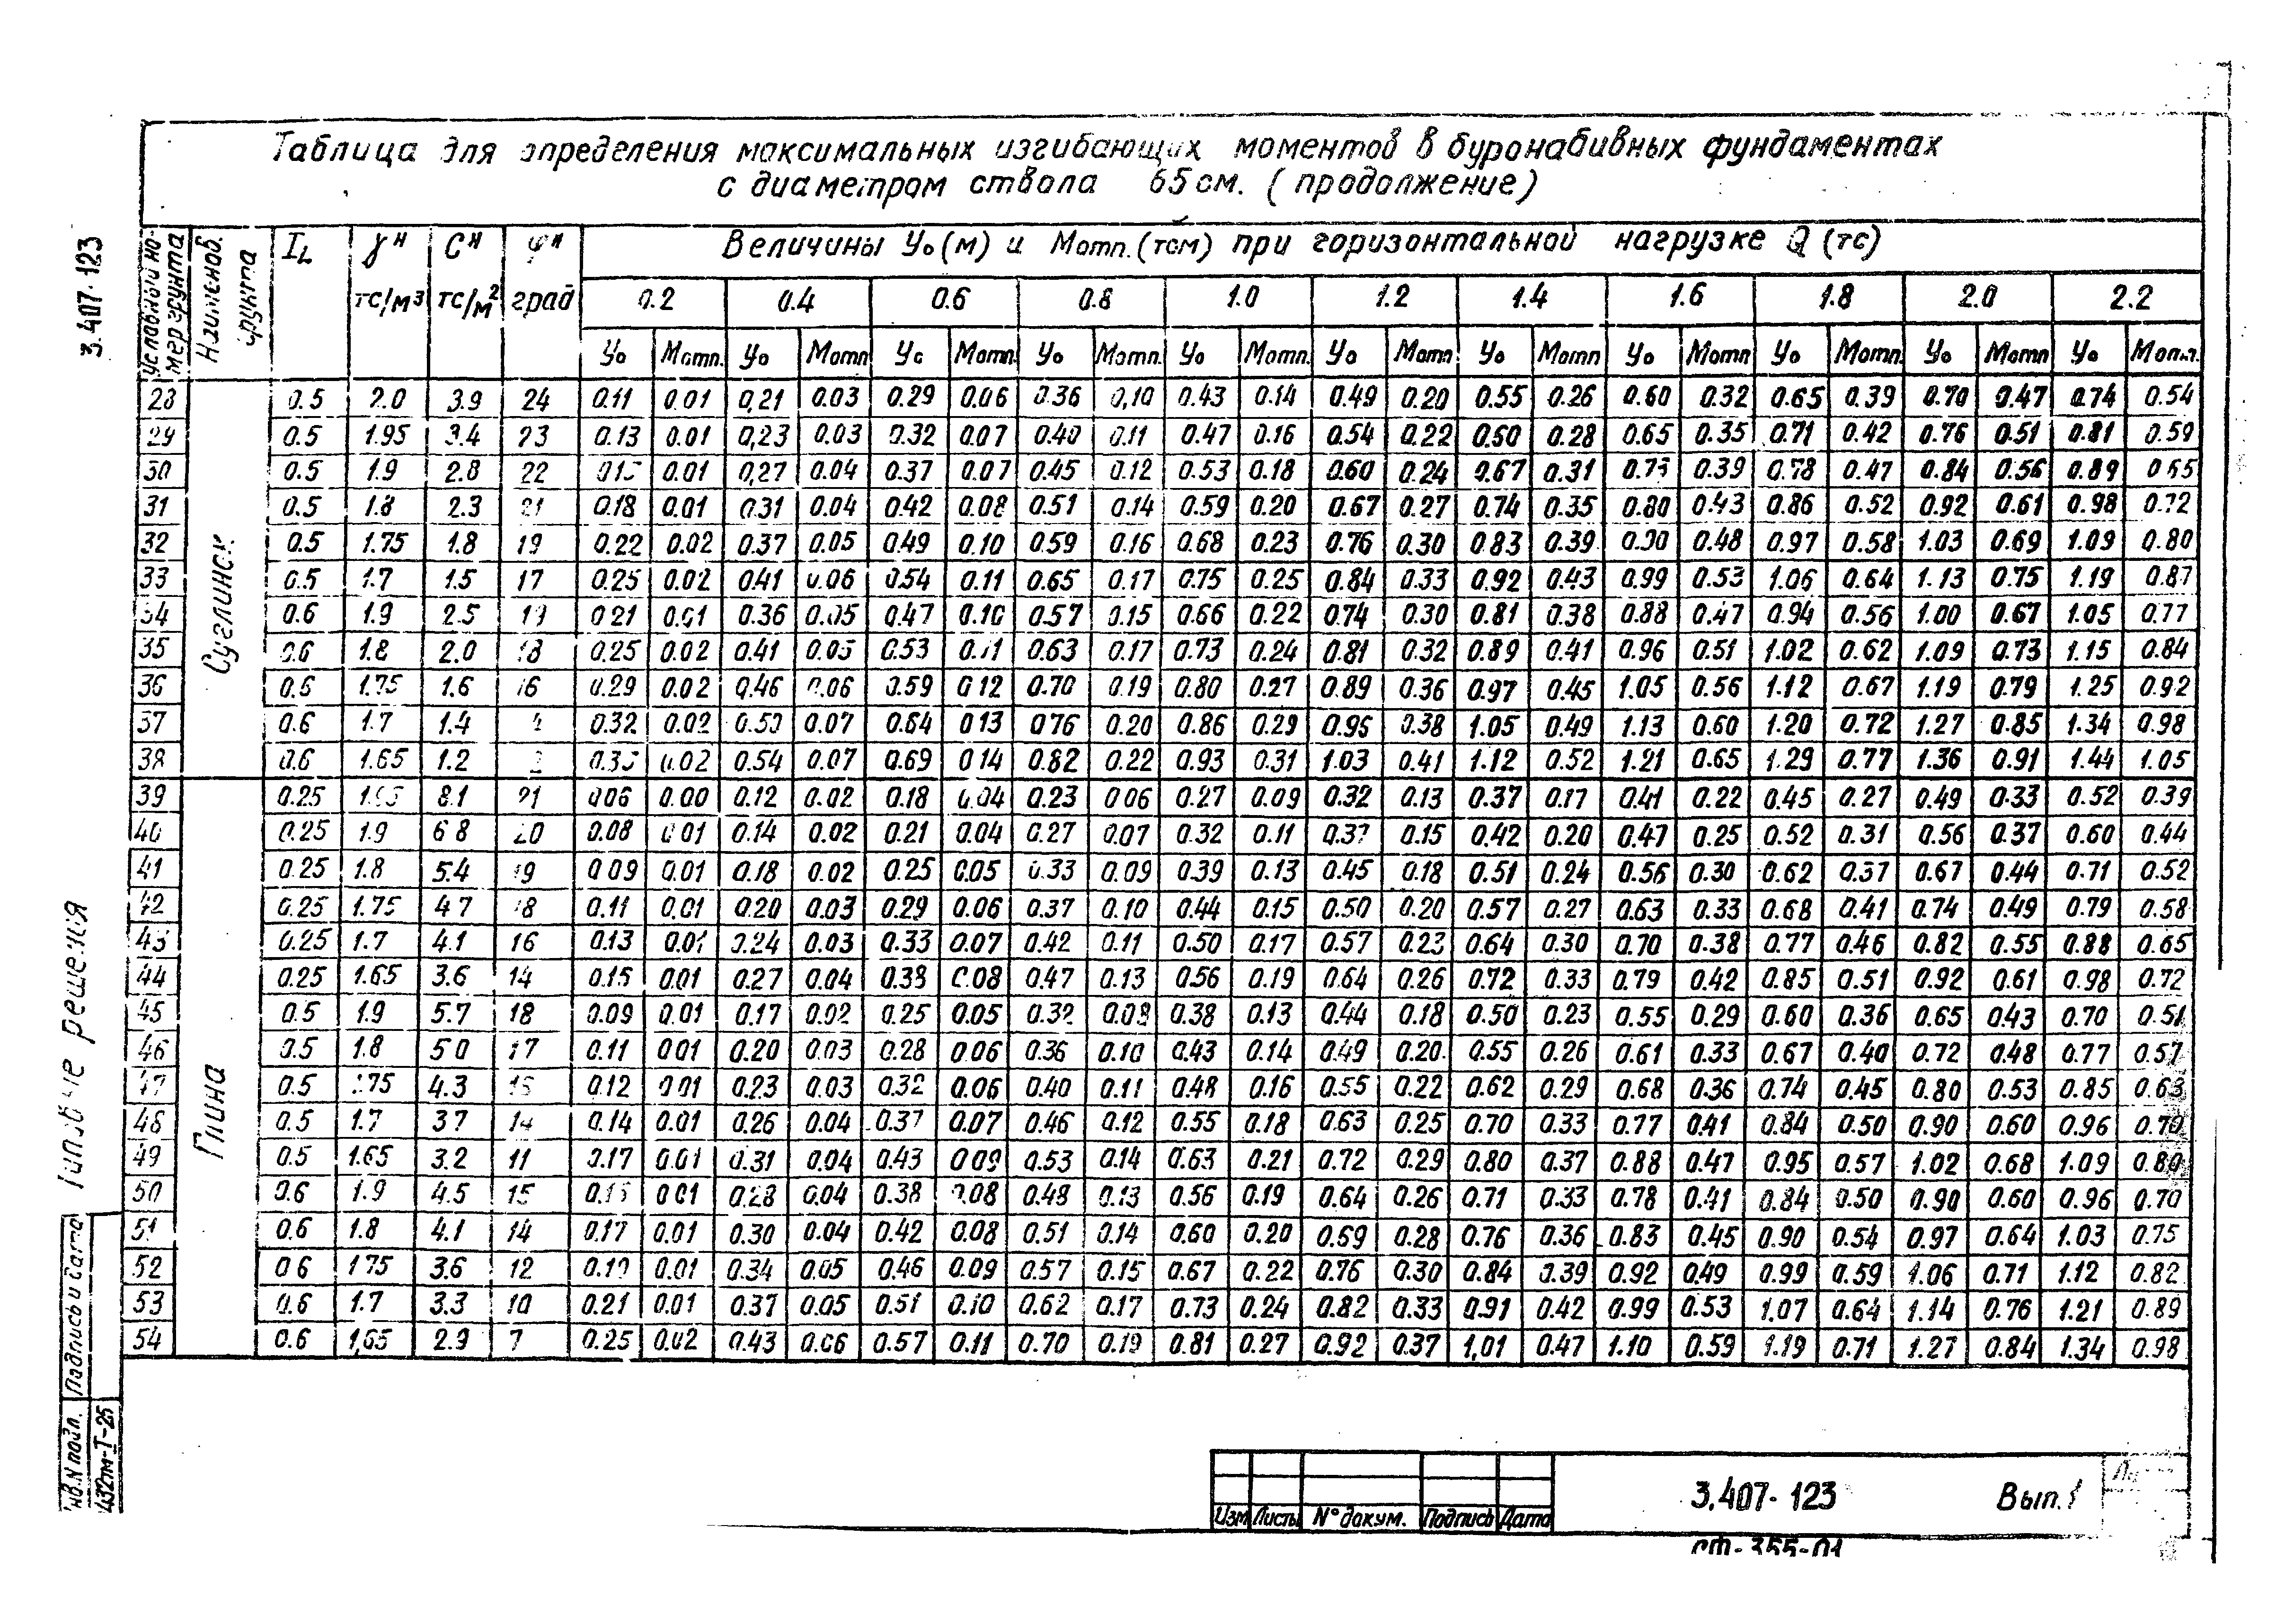 Таблица для определения максимальных изгибающих моментов в буронабивных фундаментах
с диаметром ствола 65 см. (продолжение)
3.407-123
Условный номер грунта Наименов. грунта I_L γᴴ тс/м³ Cᴴ тс/м² φᴴ град Величины Yo (м) и Мотп. (тсм) при горизонтальной нагрузке Q (тс)
0.2 0.4 0.6 0.8 1.0 1.2 1.4 1.6 1.8 2.0 2.2
Yo Мотп. Yo Мотп Yo Мотп. Yo Мотп. Yo Мотп. Yo Мотп. Yo Мотп Yo Мотп Yo Мотп Yo Мотп Yo Мотп.
Суглинск
28 0.5 2.0 3.9 24 0.11 0.01 0,21 0.03 0.29 0.06 0.36 0,10 0.43 0.14 0.49 0.20 0.55 0.26 0.60 0.32 0.65 0.39 0.70 0.47 0.74 0.54
29 0.5 1.95 3.4 23 0.13 0.01 0,23 0.03 0.32 0.07 0.40 0.11 0.47 0.16 0.54 0.22 0.60 0.28 0.65 0.35 0.71 0.42 0.76 0.51 0.81 0.59
30 0.5 1.9 2.8 22 0.01 0,27 0.04 0.37 0.07 0.45 0.12 0.53 0.18 0.60 0.24 0.67 0.31 0.73 0.39 0.78 0.47 0.84 0.56 0.89 0.65
31 0.5 1.8 2.3 21 0.18 0.01 0.31 0.04 0.42 0.08 0.51 0.14 0.59 0.20 0.67 0.27 0.74 0.35 0.80 0.43 0.86 0.52 0.92 0.61 0.98 0.72
32 0.5 1.75 1.8 19 0.22 0.02 0.37 0.05 0.49 0.10 0.59 0.16 0.68 0.23 0.76 0.30 0.83 0.39 0.90 0.48 0.97 0.58 1.03 0.69 1.09 0.80
33 0.5 1.7 1.5 17 0.25 0.02 0.41 0.06 0.54 0.11 0.65 0.17 0.75 0.25 0.84 0.33 0.92 0.43 0.99 0.53 1.06 0.64 1.13 0.75 1.19 0.87
34 0.6 1.9 2.5 19 0.21 0.01 0.36 0.05 0.47 0.10 0.57 0.15 0.66 0.22 0.74 0.30 0.81 0.38 0.88 0.47 0.94 0.56 1.00 0.67 1.05 0.77
35 0.6 1.8 2.0 18 0.25 0.02 0.41 0.05 0.53 0.11 0.63 0.17 0.73 0.24 0.81 0.32 0.89 0.41 0.96 0.51 1.02 0.62 1.09 0.73 1.15 0.84
36 0.6 1.75 1.6 16 0.29 0.02 0.46 0.06 0.59 0 12 0.70 0.19 0.80 0.27 0.89 0.36 0.97 0.45 1.05 0.56 1.12 0.67 1.19 0.79 1.25 0.92
37 0.6 1.7 1.4 0.32 0.02 0.50 0.07 0.64 0 13 0 76 0.20 0.86 0.29 0.96 0.38 1.05 0.49 1.13 0.60 1.20 0.72 1.27 0.85 1.34 0.98
38 0.6 1.65 1.2 0.02 0.54 0.07 0.69 0 14 0.82 0.22 0.93 0.31 1.03 0.41 1.12 0.52 1.21 0.65 1.29 0.77 1.36 0.91 1.44 1.05
Глина
39 0.25 1.95 8.1 21 0 06 0.00 0.12 0.02 0.18 0.04 0.23 0 06 0.27 0.09 0.32 0.13 0.37 0.17 0.41 0.22 0.45 0.27 0.49 0.33 0.52 0.39
40 0.25 1.9 6 8 20 0.08 0.01 0.14 0.02 0.21 0.04 0.27 0.07 0.32 0.11 0.37 0.15 0.42 0.20 0.47 0.25 0.52 0.31 0.56 0.37 0.60 0.44
41 0.25 1.8 5.4 19 0 09 0.01 0.18 0.02 0.25 0.05 0.33 0.09 0.39 0.13 0.45 0.18 0.51 0.24 0.56 0.30 0.62 0.37 0.67 0.44 0.71 0.52
42 0.25 1.75 4 7 18 0.11 0.01 0.20 0.03 0.29 0.06 0.37 0.10 0.44 0.15 0.50 0.20 0.57 0.27 0.63 0.33 0.68 0.41 0.74 0.49 0.79 0.58
43 0.25 1.7 4.1 16 0.13 0.01 0.24 0.03 0.33 0.07 0.42 0.11 0.50 0.17 0.57 0.23 0.64 0.30 0.70 0.38 0.77 0.46 0.82 0.55 0.88 0.65
44 0.25 1.65 3.6 14 0.15 0.01 0.27 0.04 0.38 0.08 0.47 0.13 0.56 0.19 0.64 0.26 0.72 0.33 0.79 0.42 0.85 0.51 0.92 0.61 0.98 0.72
45 0.5 1.9 5.7 18 0.09 0.01 0.17 0.02 0.25 0.05 0.32 0.08 0.38 0.13 0.44 0.18 0.50 0.23 0.55 0.29 0.60 0.36 0.65 0.43 0.70 0.51
46 0.5 1.8 5 0 17 0.11 0 01 0.20 0.03 0.28 0.06 0.36 0.10 0.43 0.14 0.49 0.20 0.55 0.26 0.61 0.33 0.67 0.40 0.72 0.48 0.77 0.57
47 0.5 1.75 4.3 16 0.12 0.01 0.23 0.03 0.32 0.06 0.40 0.11 0.48 0.16 0.55 0.22 0.62 0.29 0.68 0.36 0.74 0.45 0.80 0.53 0.85 0.63
48 0.5 1.7 3 7 14 0.14 0.01 0.26 0.04 0.37 0.07 0.46 0.12 0.55 0.18 0.63 0.25 0.70 0.33 0.77 0.41 0.84 0.50 0.90 0.60 0.96 0.70
49 0.5 1.65 3.2 11 0.17 0.01 0.31 0.04 0.43 0 09 0.53 0.14 0.63 0.21 0.72 0.29 0.80 0.37 0.88 0.47 0.95 0.57 1.02 0.68 1.09 0.80
50 0.6 1.9 4.5 15 0 01 0.28 0.04 0.38 0.08 0.48 0.13 0.56 0.19 0.64 0.26 0.71 0.33 0.78 0.41 0.84 0.50 0.90 0.60 0.96 0.70
51 0.6 1.8 4.1 14 0.17 0.01 0.30 0.04 0.42 0.08 0.51 0.14 0.60 0.20 0.69 0.28 0.76 0.36 0.83 0.45 0.90 0.54 0.97 0.64 1.03 0.75
52 0 6 1 75 3.6 12 0.19 0.01 0.34 0.05 0.46 0.09 0.57 0.15 0.67 0.22 0.76 0.30 0.84 0.39 0.92 0.49 0.99 0.59 1.06 0.71 1.12 0.82
53 0.6 1.7 3.3 10 0.21 0.01 0.37 0.05 0.51 0.10 0.62 0.17 0.73 0.24 0.82 0.33 0.91 0.42 0.99 0.53 1.07 0.64 1.14 0.76 1.21 0.89
54 0.6 1,65 2.9 7 0.25 0.02 0.43 0.06 0.57 0.11 0.70 0.19 0.81 0.27 0.92 0.37 1,01 0.47 1.10 0.59 1.19 0.71 1.27 0.84 1.34 0.98
решения
Подпись и дата
Инв.N подл.
432тм-I-25
Изм Листы N° докум. Подпись Дата
3.407-123 Вып.1